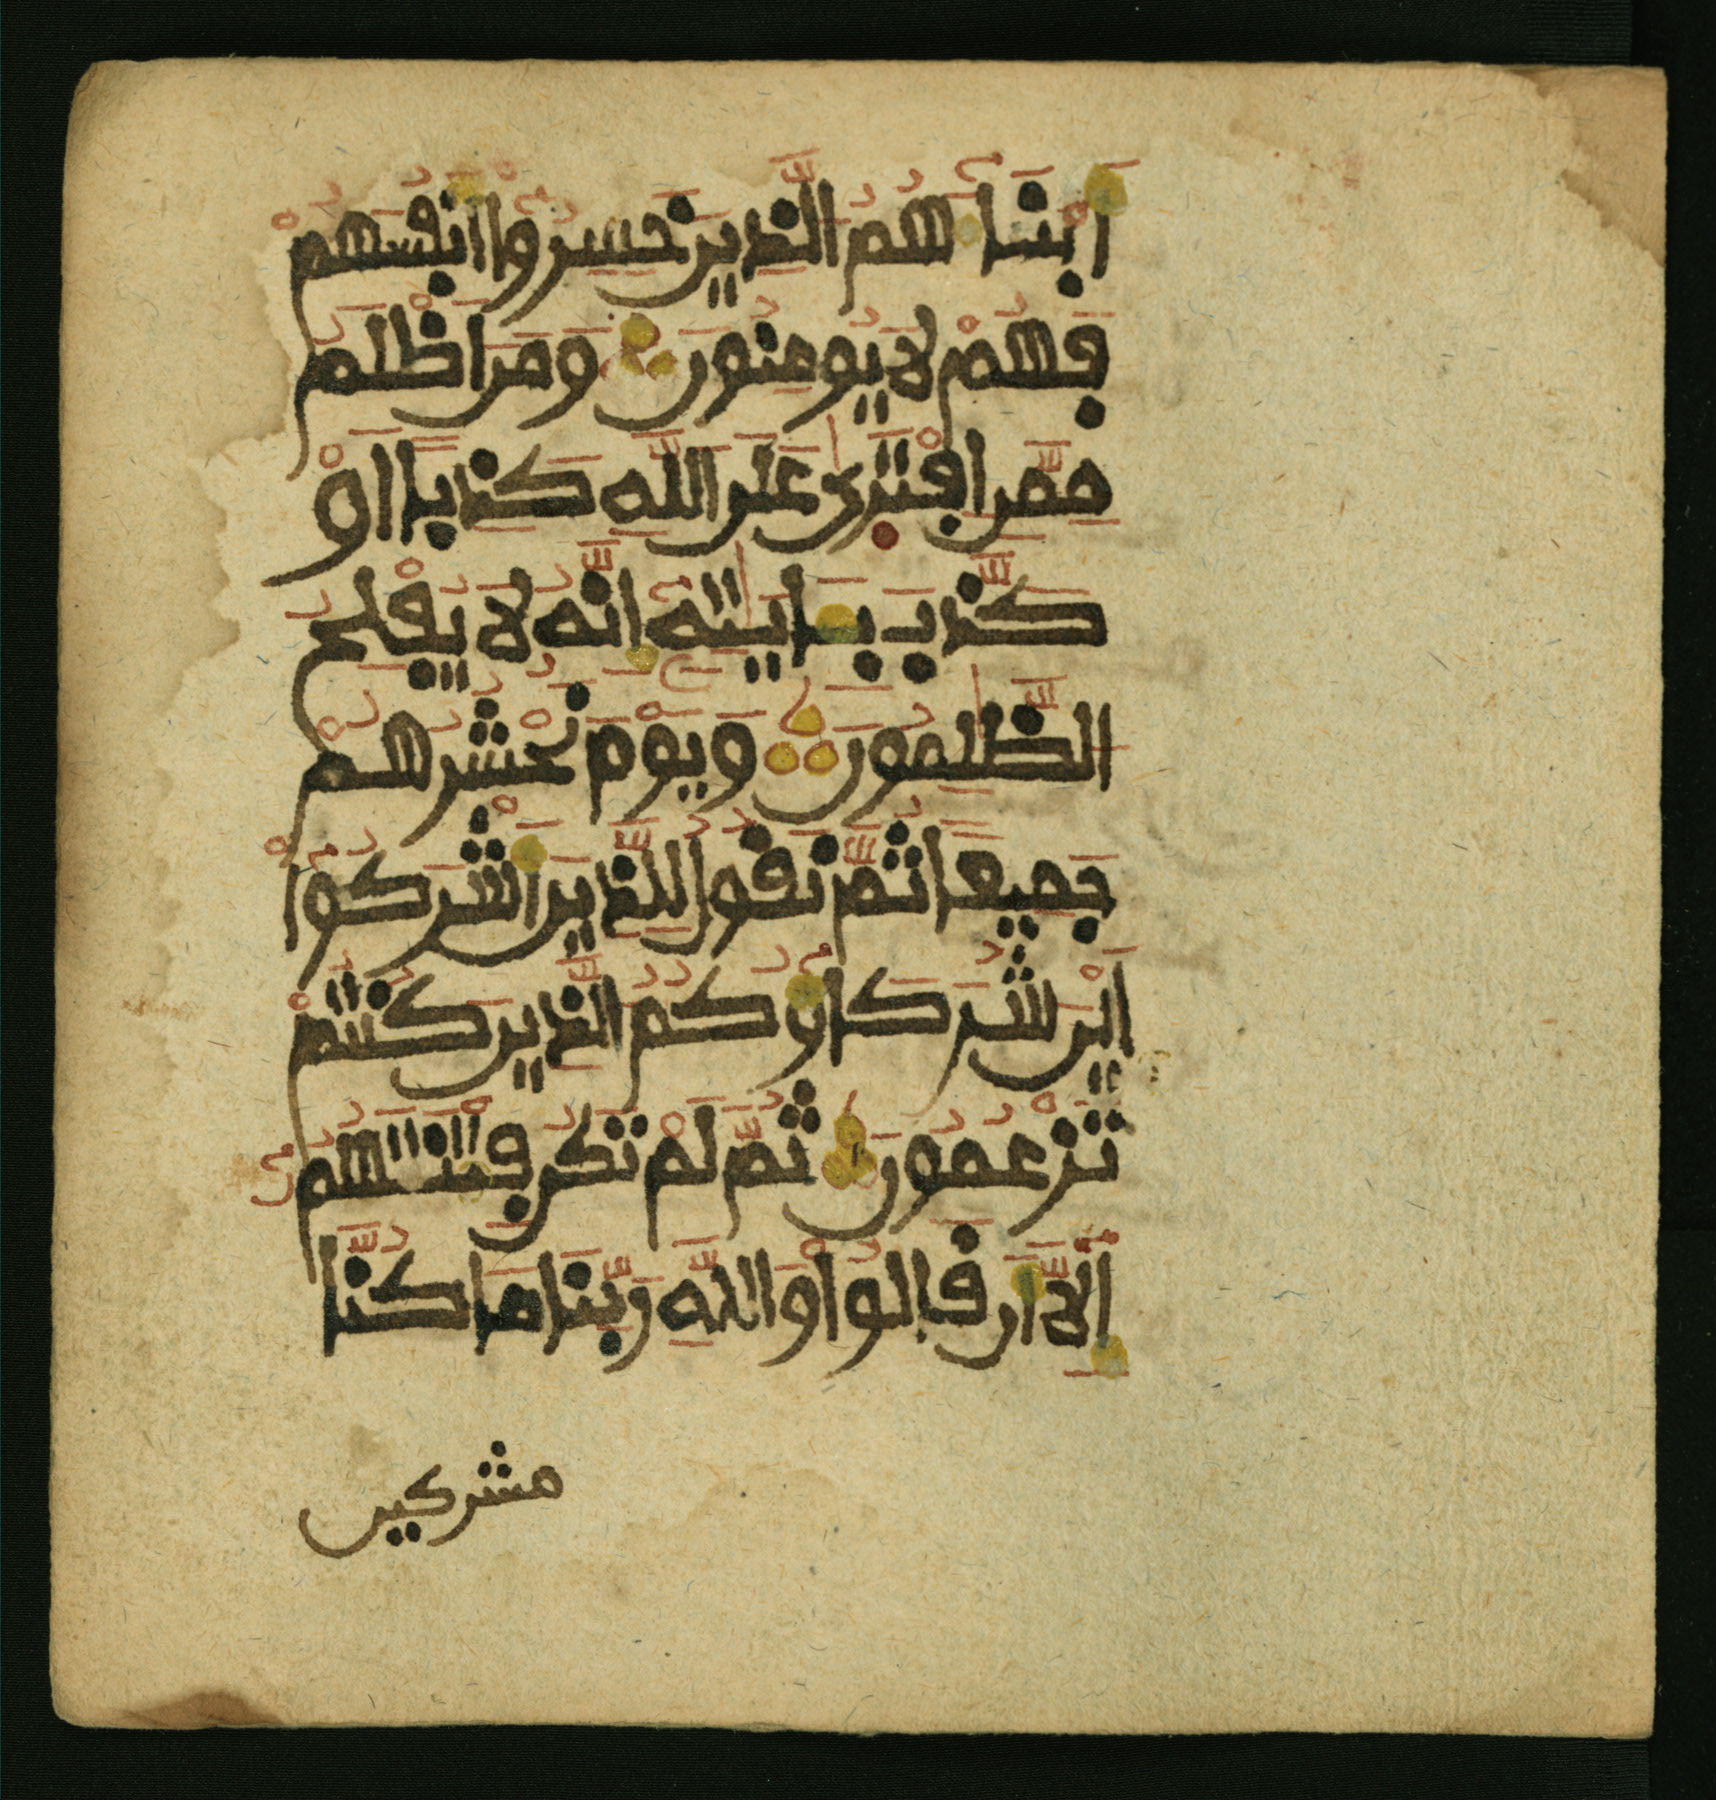 أَبْنَاءَهُمُ الَّذِينَ خَسِرُوا أَنفُسَهُمْ
فَهُمْ لَا يُومِنُونَ وَمَنَ اَظْلَمُ
مِمَّنِ اِفْتَرَىٰ عَلَى اللَّهِ كَذِبًا اَوْ
كَذَّبَ بِـَٔايَٰتِهِ إِنَّهُ لَا يُفْلِحُ
الظَّٰلِمُونَ وَيَوْمَ نَحْشُرُهُمْ
جَمِيعًا ثُمَّ نَقُولُ لِلَّذِينَ أَشْرَكُوا
أَيْنَ شُرَكَاؤُكُمُ الَّذِينَ كُنتُمْ
تَزْعُمُونَ ثُمَّ لَمْ تَكُن فِتْنَتُهُمُ
إِلَّا أَن قَالُوا وَاللَّهِ رَبِّنَا مَا كُنَّا
مشركين